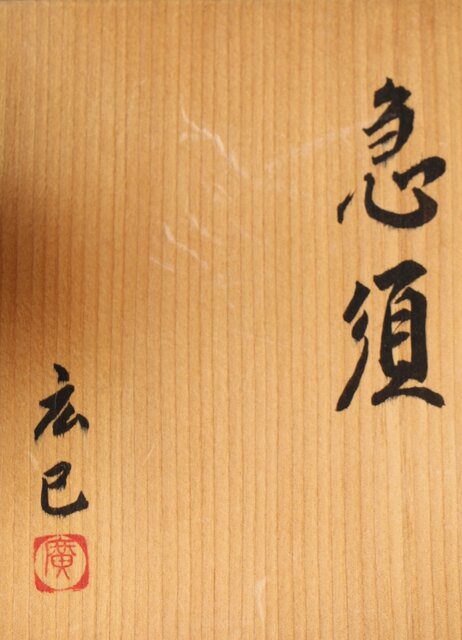 急須
広巳
廣